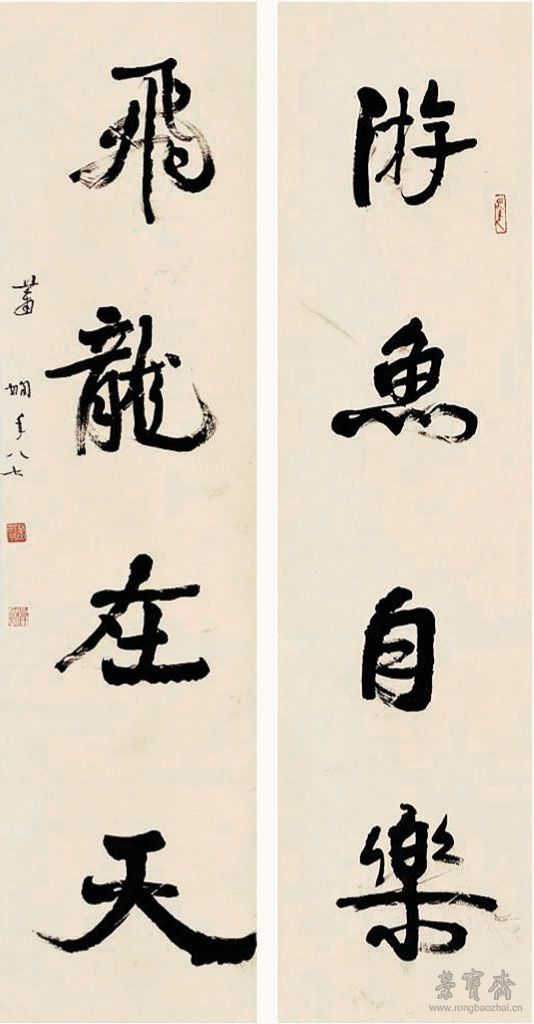 游魚自樂
飛龍在天
蕭嫻年八七
榮寶齋
www.rongbaozhai.cn